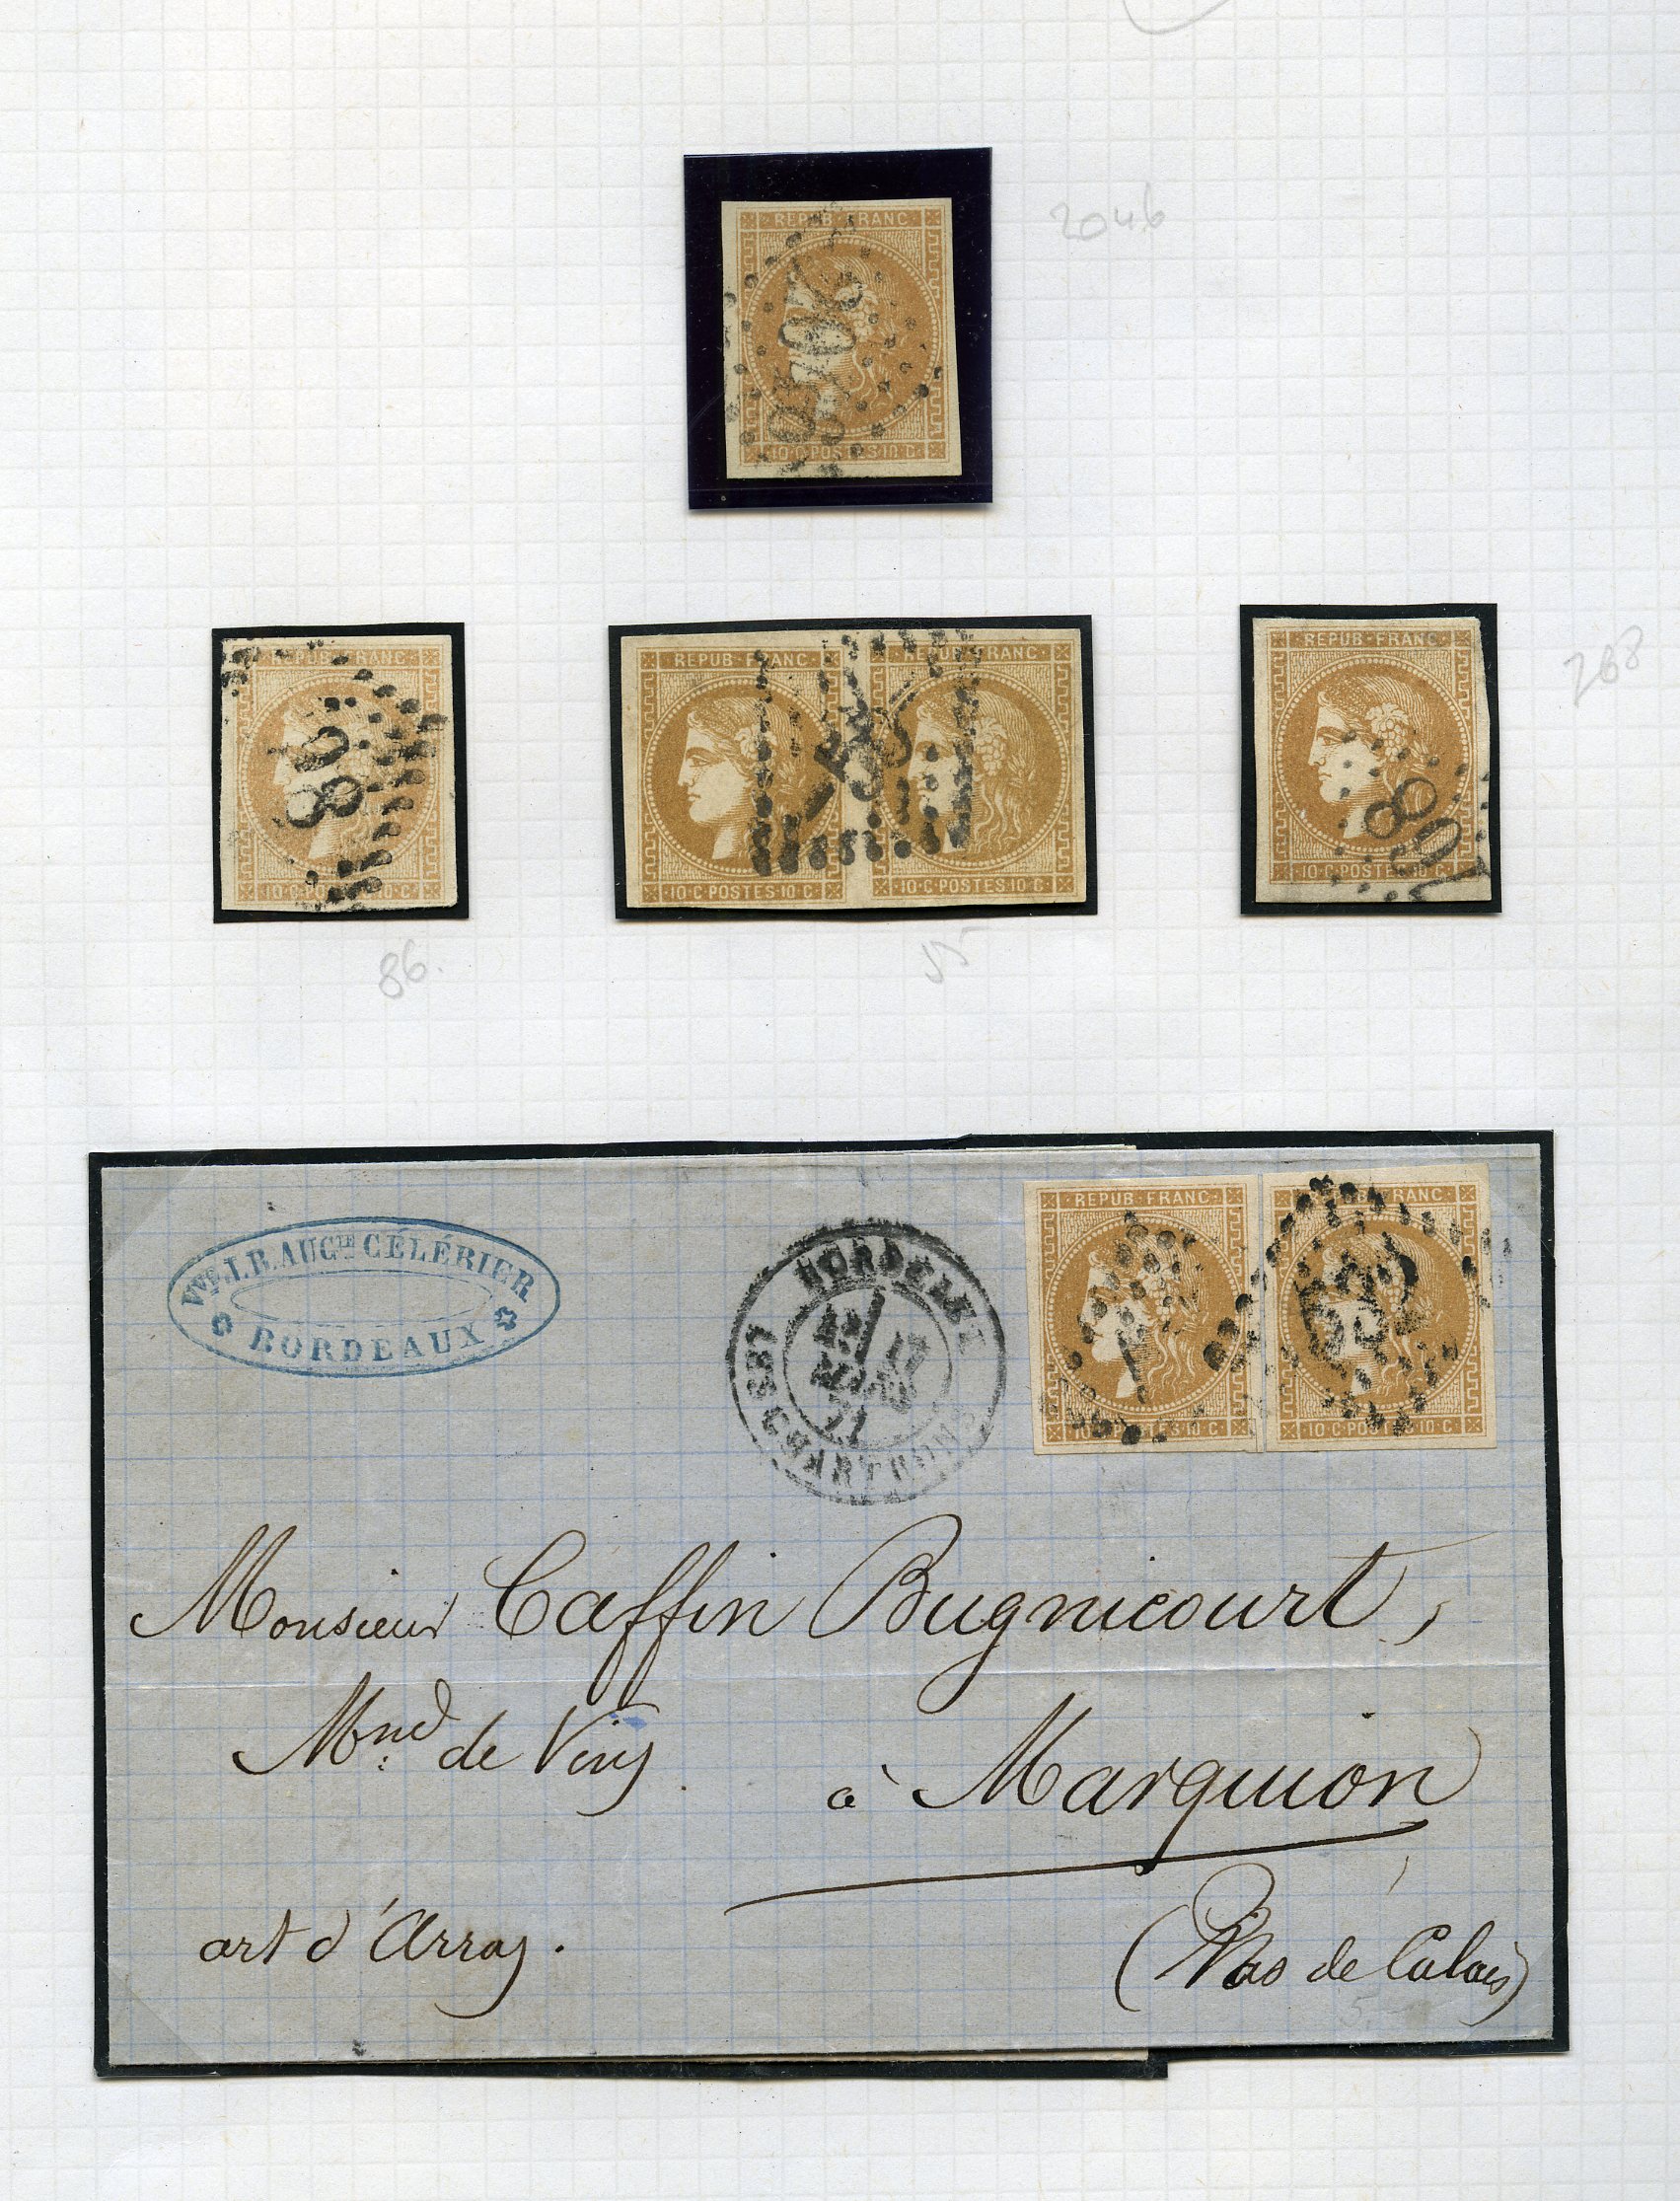 REPUB·FRANC
10·C·POSTES·10·C
2046
2046
REPUB·FRANC
10·C·POSTES·10·C
86.
REPUB·FRANC
10·C·POSTES·10·C
REPUB·FRANC
10·C·POSTES·10·C
55
REPUB·FRANC
10·C·POSTES·10·C
268
VVE J.B. AUGTE CÉLÉRIER
BORDEAUX
BORDEAUX
71
LES CHARTRONS
REPUB·FRANC
10·C·POSTES·10·C
REPUB·FRANC
10·C·POSTES·10·C
532
Monsieur Caffin Bugnicourt,
Mnd de Vins
à Marquion
art d'Arras.
(Pas de Calais)